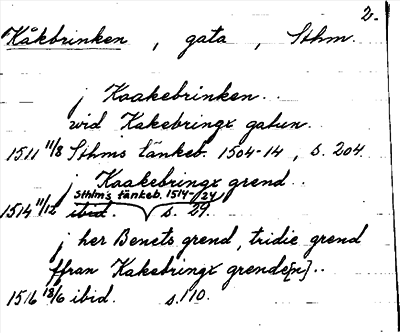 2.
Kåkbrinken, gata, Sthm.
j Kaakebrinken..
vid Kakebringx gatun..
1511 11/8 Sthms tänkeb. 1504-14, s. 204.
j Kaakebringx grend..
Sthlm's tänkeb. 1514-/24
1514 11/12 ibid. s. 29.
j her Benets grend, tridie grend
ffran Kakebringx grende[n]..
1516 18/6 ibid. s. 110.